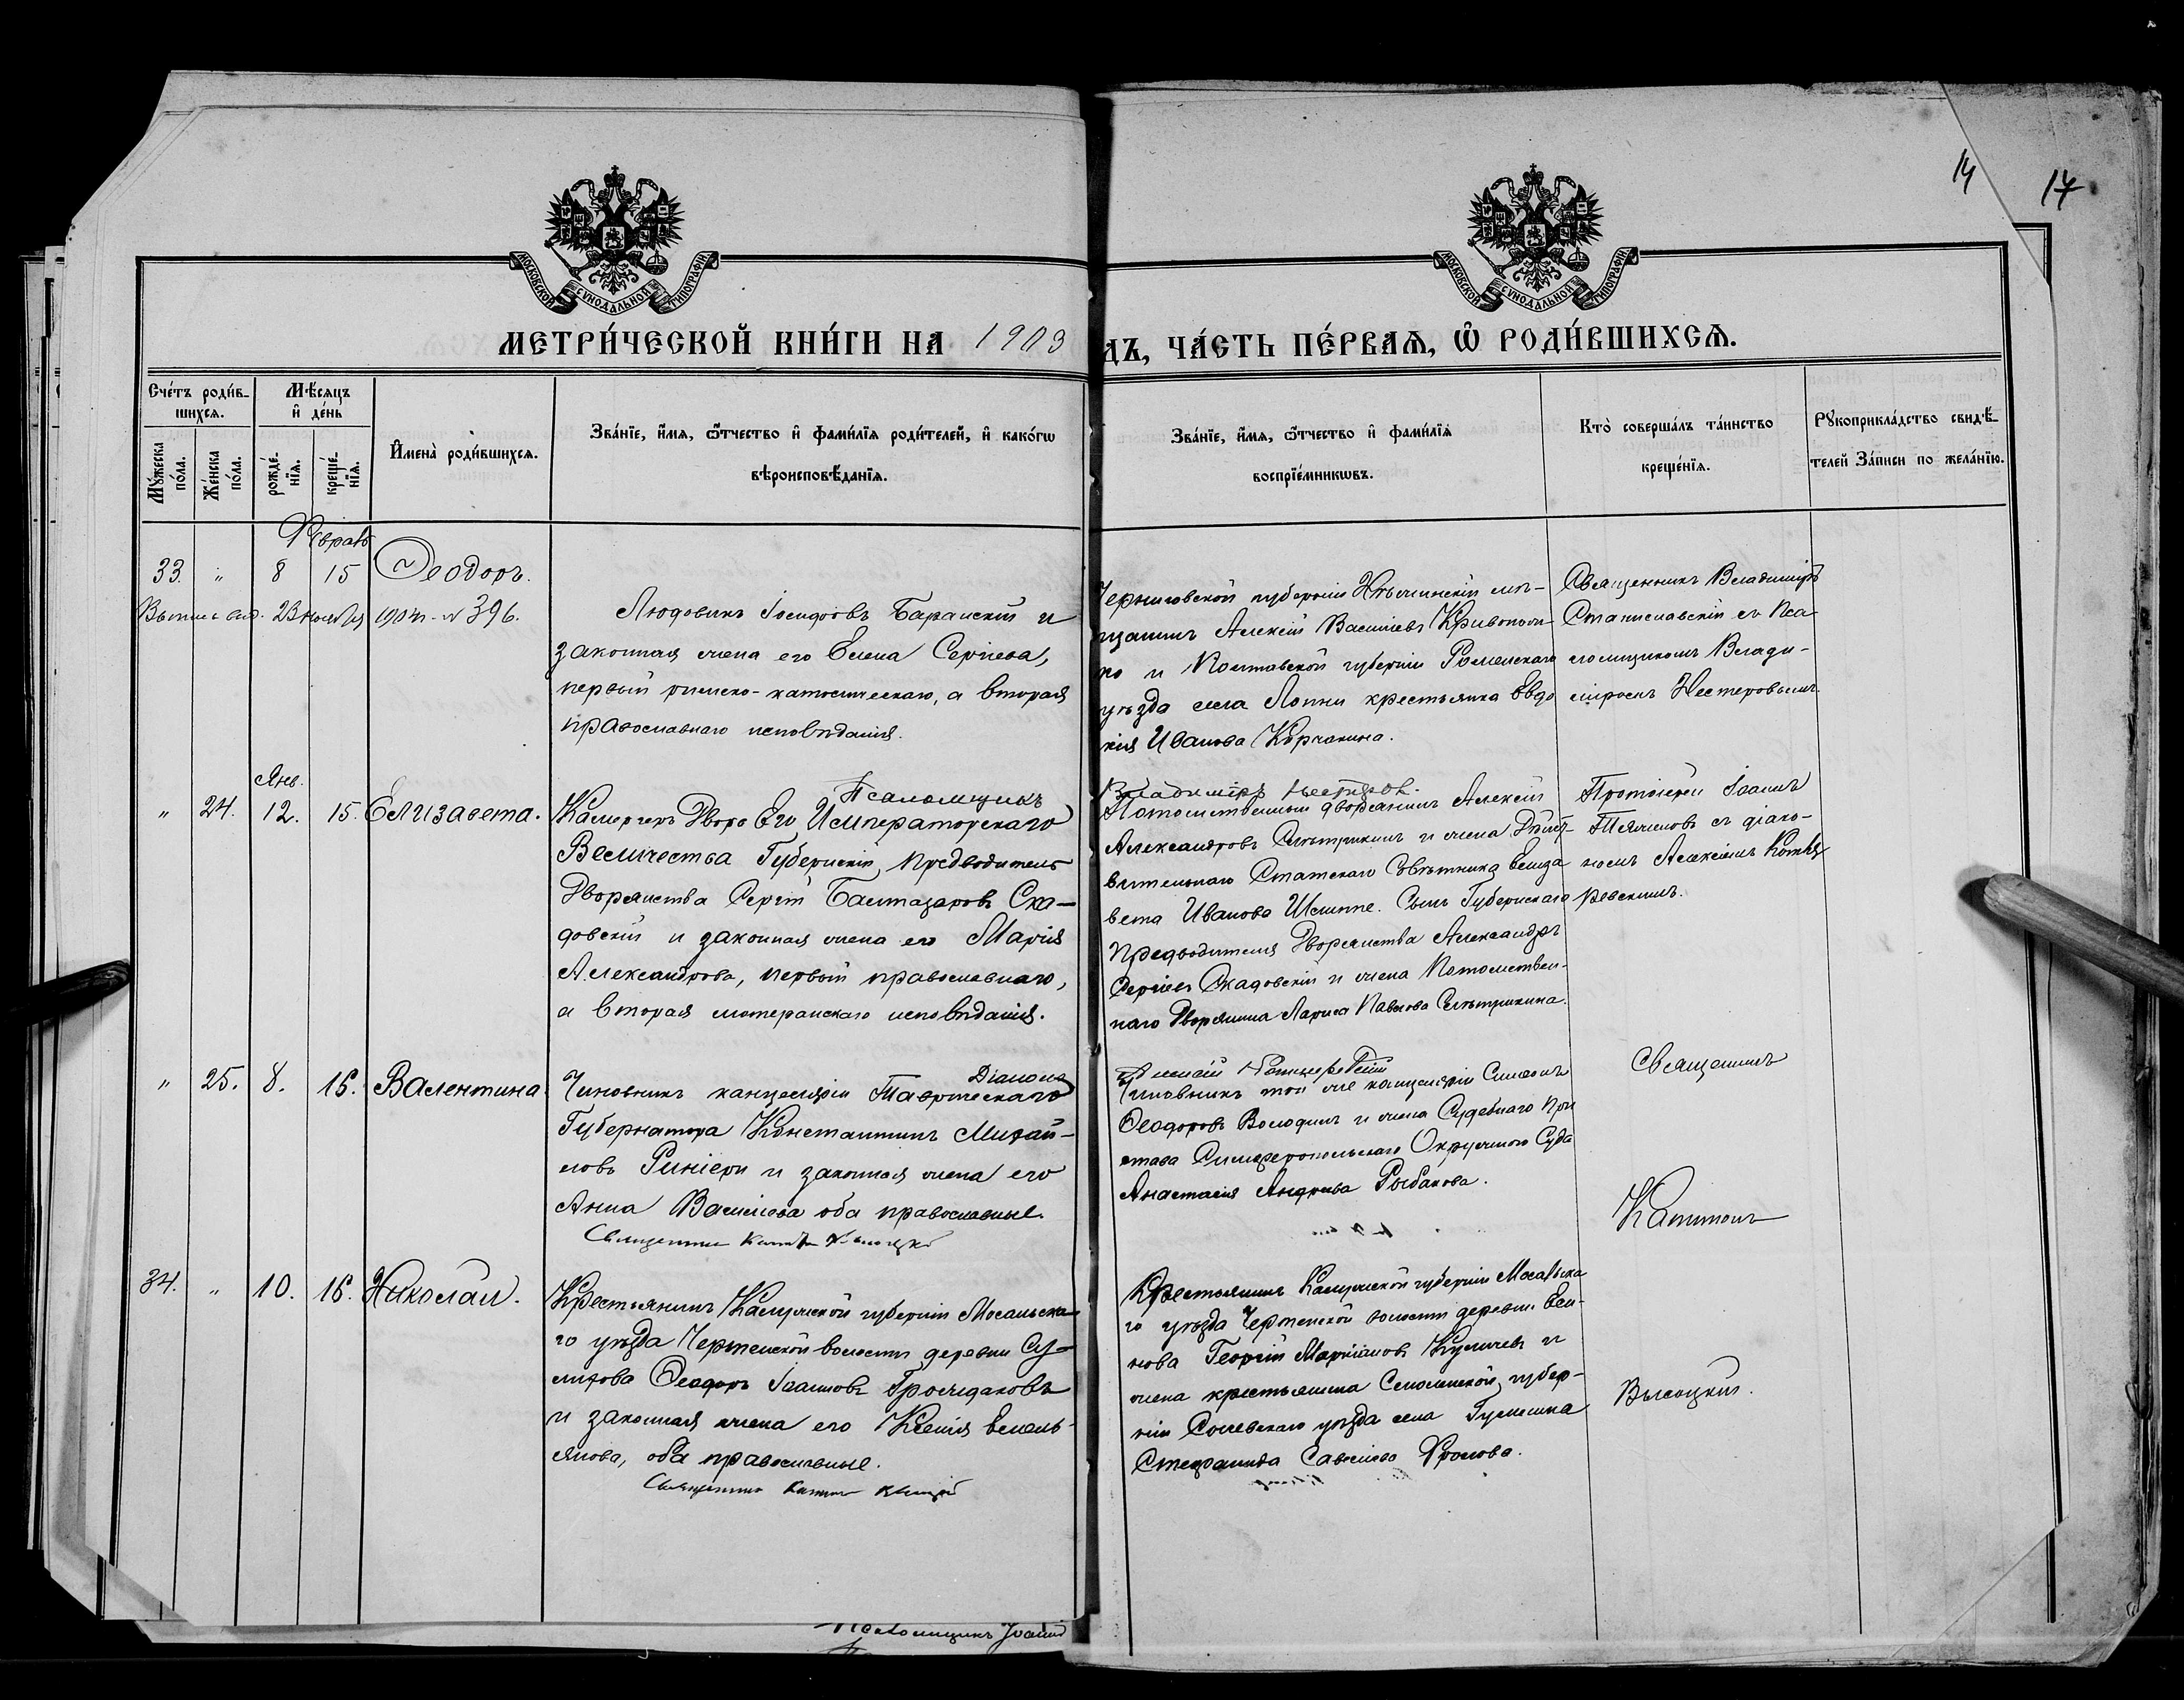 14
17
МОСКОВСКОЙ СѴНОДАЛЬНОЙ ТИПОГРАФІИ
МОСКОВСКОЙ СѴНОДАЛЬНОЙ ТИПОГРАФІИ
МЕТРИ́ЧЕСКОЙ КНИ́ГИ НА 1903
ДЪ, ЧА́СТЬ ПЕ́РВАѦ, Ѽ РОДИ́ВШИХСѦ.
Сче́тъ роди́в-
шихсѧ.
Мꙋ́жеска по́ла.
Же́нска по́ла.
Мѣ́сѧцъ
и҆ де́нь
рожде́-
нїѧ.
креще́-
нїѧ.
И҆мена̀ роди́вшихсѧ.
Зва́нїе, и҆́мѧ, ѻ҆́тчество и҆ фами́лїѧ роди́телей, и҆ како́гѡ
вѣроисповѣ́данїѧ.
Зва́нїе, и҆́мѧ, ѻ҆́тчество и҆ фами́лїѧ
воспрїе́мникѡвъ.
Кто̀ соверша́лъ та́инство
креще́нїѧ.
Рꙋкоприкла́дство свидѣ́-
телей За́писи по жела́нїю.
Февраль
33. " 8 15 Ѳеодоръ.
23 ноября 1904 г. № 396.
Людовикъ Іосифовъ Баранскій и
законная жена его Елена Сергіева,
первый римско-католическаго, а вторая
православнаго исповѣданія.
Черниговской губерніи Нѣжинскій мѣ-
щанинъ Алексій Василіевъ
и Полтавской губерніи Роменскаго
уѣзда села крестьянка Евдо
кія Иванова Корчакина.
Священникъ Владиміръ
Станиславскій съ Пса
ломщикомъ Влади-
міромъ Нестеровымъ.
Псаломщикъ
Владиміръ Нестеровъ.
Янв.
" 24. 12. 15. Елизавета.
Камергеръ Двора Его Императорскаго
Величества Губернскій Предводитель
Дворянства Сергій Балтазаровъ Ска-
довскій и законная жена его Марія
Александрова, первый православнаго,
а вторая лютеранскаго исповѣданія.
Потомственный дворянинъ Алексій
Александровъ и жена Дѣйст-
вительнаго Статскаго Совѣтника Елиза
вета Иванова Шлиппе. Сынъ Губернскаго
Предводителя Дворянства Александръ
Сергіевъ Скадовскій и жена Потомствен-
наго Дворянина Лариса Павлова
Протоіерей Іоаннъ
Тяжеловъ съ діако-
номъ Алексіемъ Котля
ревскимъ.
Діаконъ
" 25. 8. 16. Валентина
Чиновникъ канцеляріи Таврическаго
Губернатора Константинъ Михай-
ловъ Риніери и законная жена его
Анна Василіева оба православные.
Священникъ
Чиновникъ той же канцеляріи Симеонъ
Ѳеодоровъ Володинъ и жена Судебнаго При
става Симферопольскаго Окружнаго Суда
Анастасія Андреева Рыбакова.
Священникъ
Капитонъ
Высоцкій.
34. " 10. 16. Николай.
Крестьянинъ Калужской губерніи Мосальска-
го уѣзда Чертенской волости деревни Су-
Ѳеодоръ Іоанновъ Громдаковъ
и законная жена его Ксенія Емель-
янова, оба православные.
Священникъ
Крестьянинъ Калужской губерніи Мосальска
го уѣзда Чертенской волости деревни
нова Георгій Маркіановъ и
жена крестьянина Смоленской губер-
ніи уѣзда села
Стефанида Савелова Фролова.
Псаломщикъ Іоаннъ